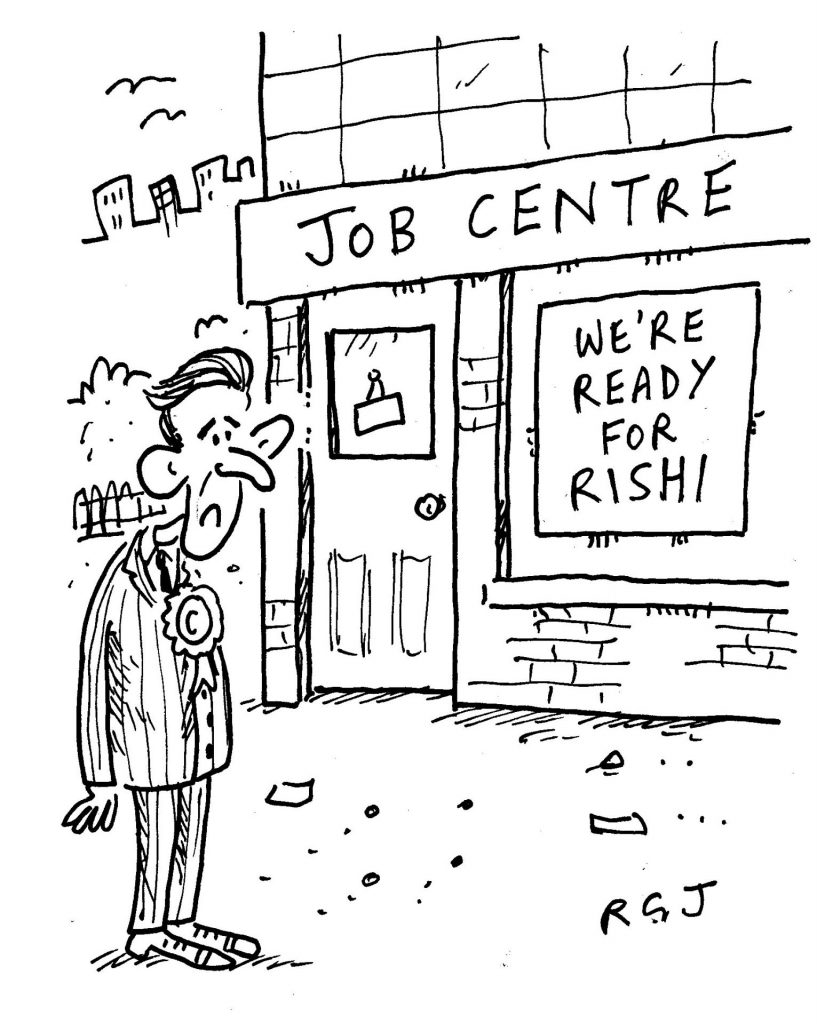 JOB CENTRE
WE'RE
READY
FOR
RISHI
C
RGJ